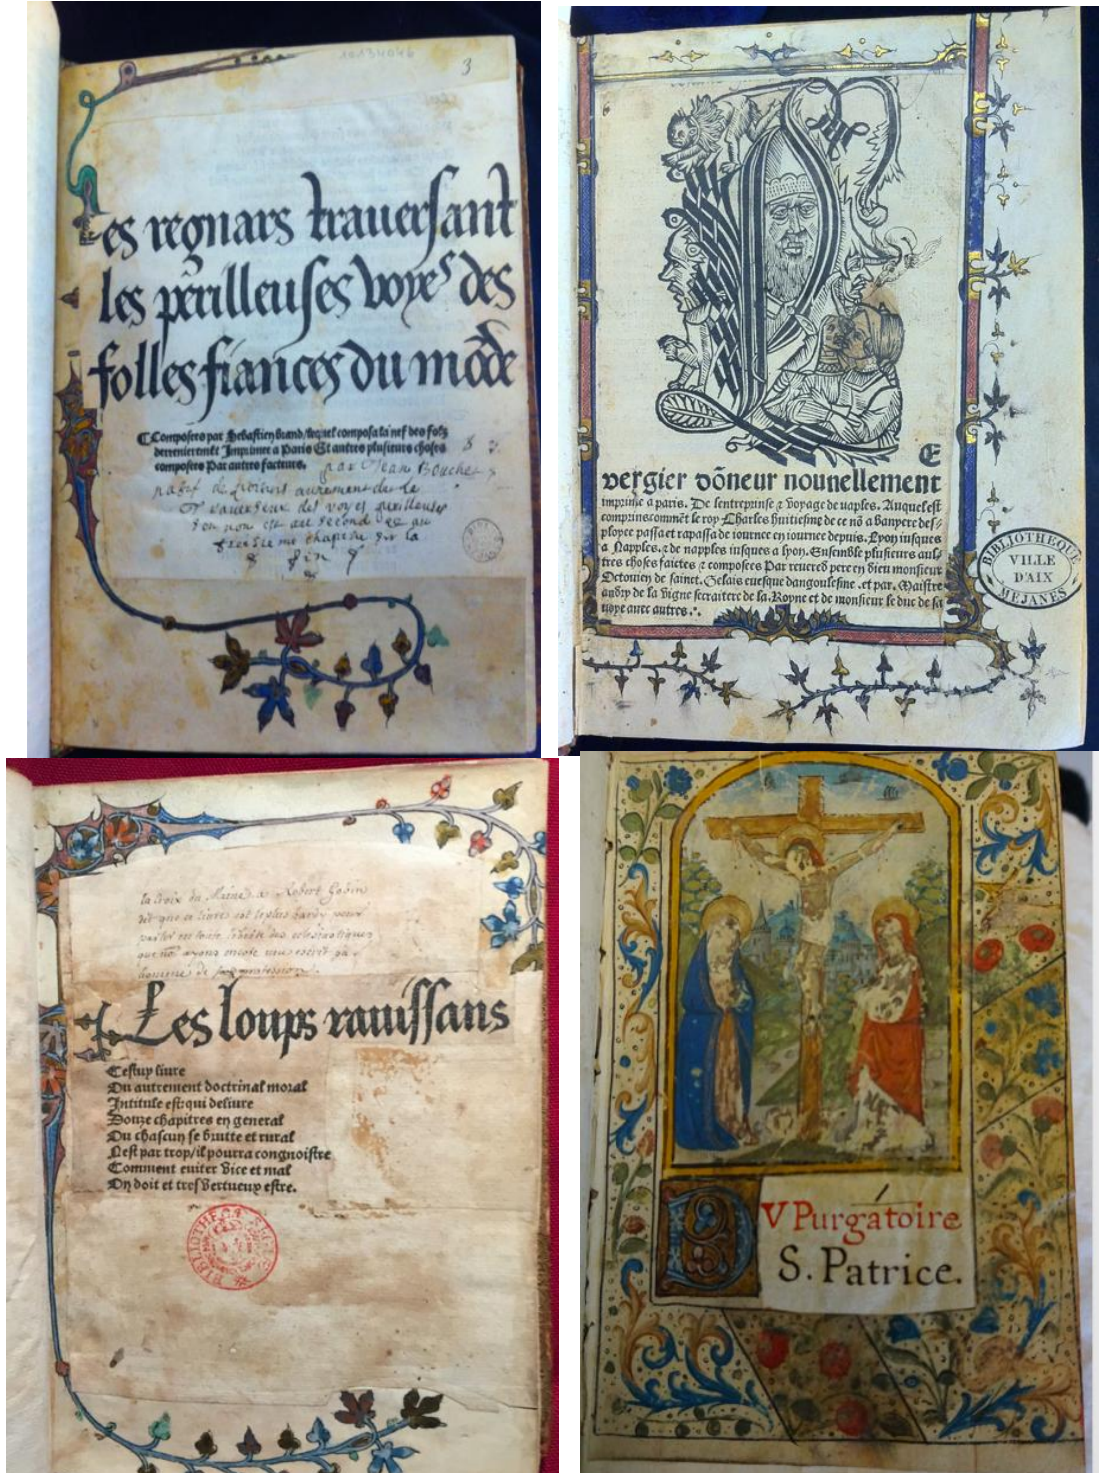 10134046
3
Les regnars trauersant
les perilleuses voyes des
folles fiances du mōde
Composees par Sebastien brand/lequel composa la nef des folz
derrenierement Imprimee a Paris Et autres plusieurs choses
composees Par autres facteurs.
par Jean Bouchet
natif de poitiers autrement dit le
Traverseux des voyes perilleuses
second
chapitre sur la
fin
E
vergier dōneur nouuellement
imprime a paris. De lentreprinse ⁊ voyage de naples. Auquel est
comprins commēt le roy Charles huitiesme de ce nō a banyere des/
ployee passa et rapassa de iournee en iournee depuis. Lyon iusques
a Napples. ⁊ de napples iusques a lyon. Ensemble plusieurs aul/
tres choses faictes ⁊ composees Par reuerēd pere en dieu monsieur
Octouien de sainct. Gelais euesque dangoulesme .et par. Maistre
andry de la vigne secraitere de la. Royne et de monsieur le duc de sa
uoye auec autres.
BIBLIOTHEQUE
VILLE
D'AIX
MEJANES
la croix du Maine a Robert Gobin
dit que ce livre est le plus hardy pour
parler en toute liberté des eclesiastiques
que nous ayons encore veu escrit par
homme de sa profession
Les loups rauissans
Cestuy liure
Ou autrement doctrinal moral
Intitule est: qui deliure
Douze chapitres en general
Ou chascun se brutte et rural
Nest par trop/il pourra congnoistre
Comment euiter vice et mal
On doit et tres vertueux estre.
DV Purgatoire
S. Patrice.